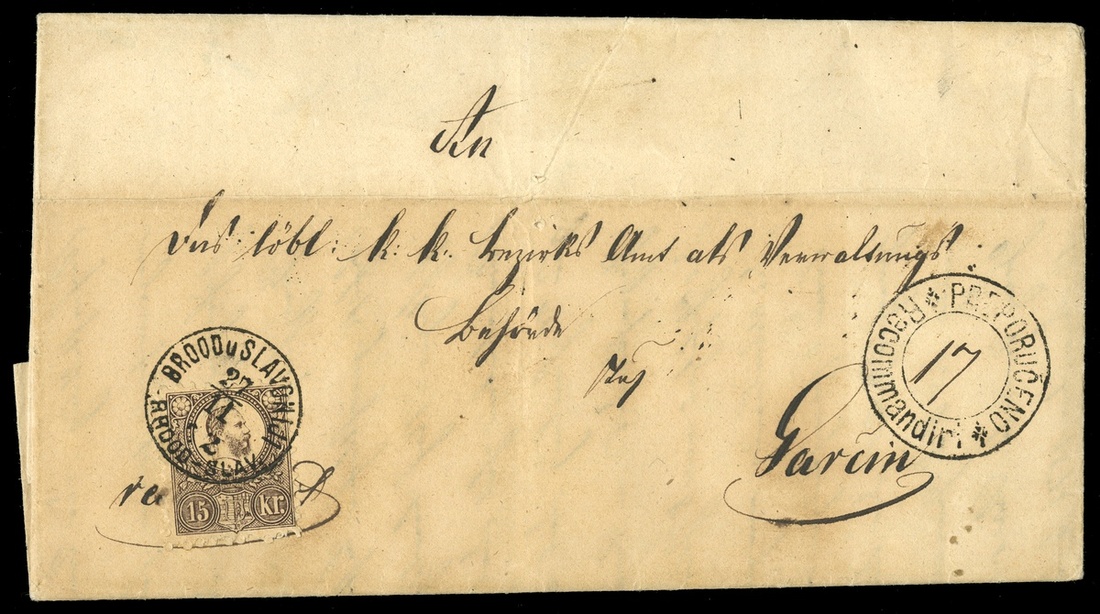 An
Das löbl: k: k. Bezirks Amt als Verwaltungs
Behörde
Garčin
BROOD u SLAVONIJI
27
11
2
BROOD-SLAV
15 kr.
PREPORUČENO
Racommandirt
17